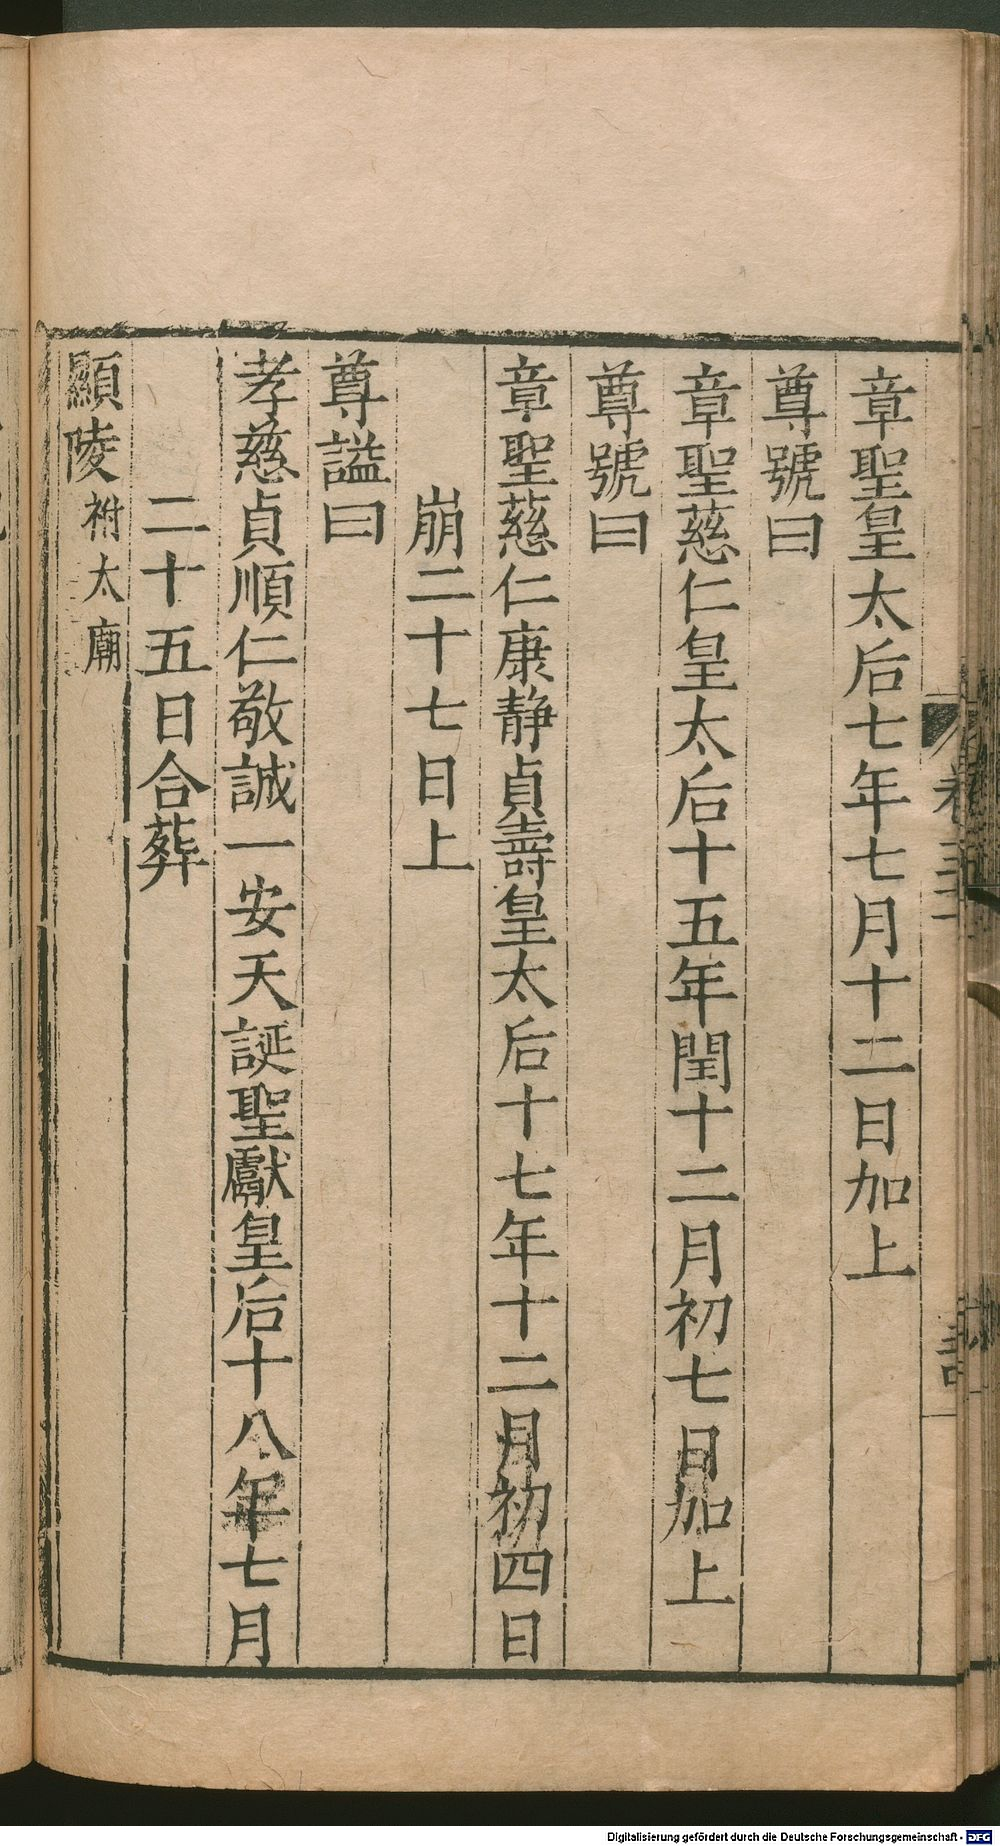 章聖皇太后七年七月十二日加上
尊號曰
章聖慈仁皇太后十五年閏十二月初七日加上
尊號曰
章聖慈仁康静貞壽皇太后十七年十二月初四日
崩二十七日上
尊謚曰
孝慈貞順仁敬誠一安天誕聖獻皇后十八年七月
二十五日合葬
顯陵祔太廟
Digitalisierung gefördert durch die Deutsche Forschungsgemeinschaft - DFG